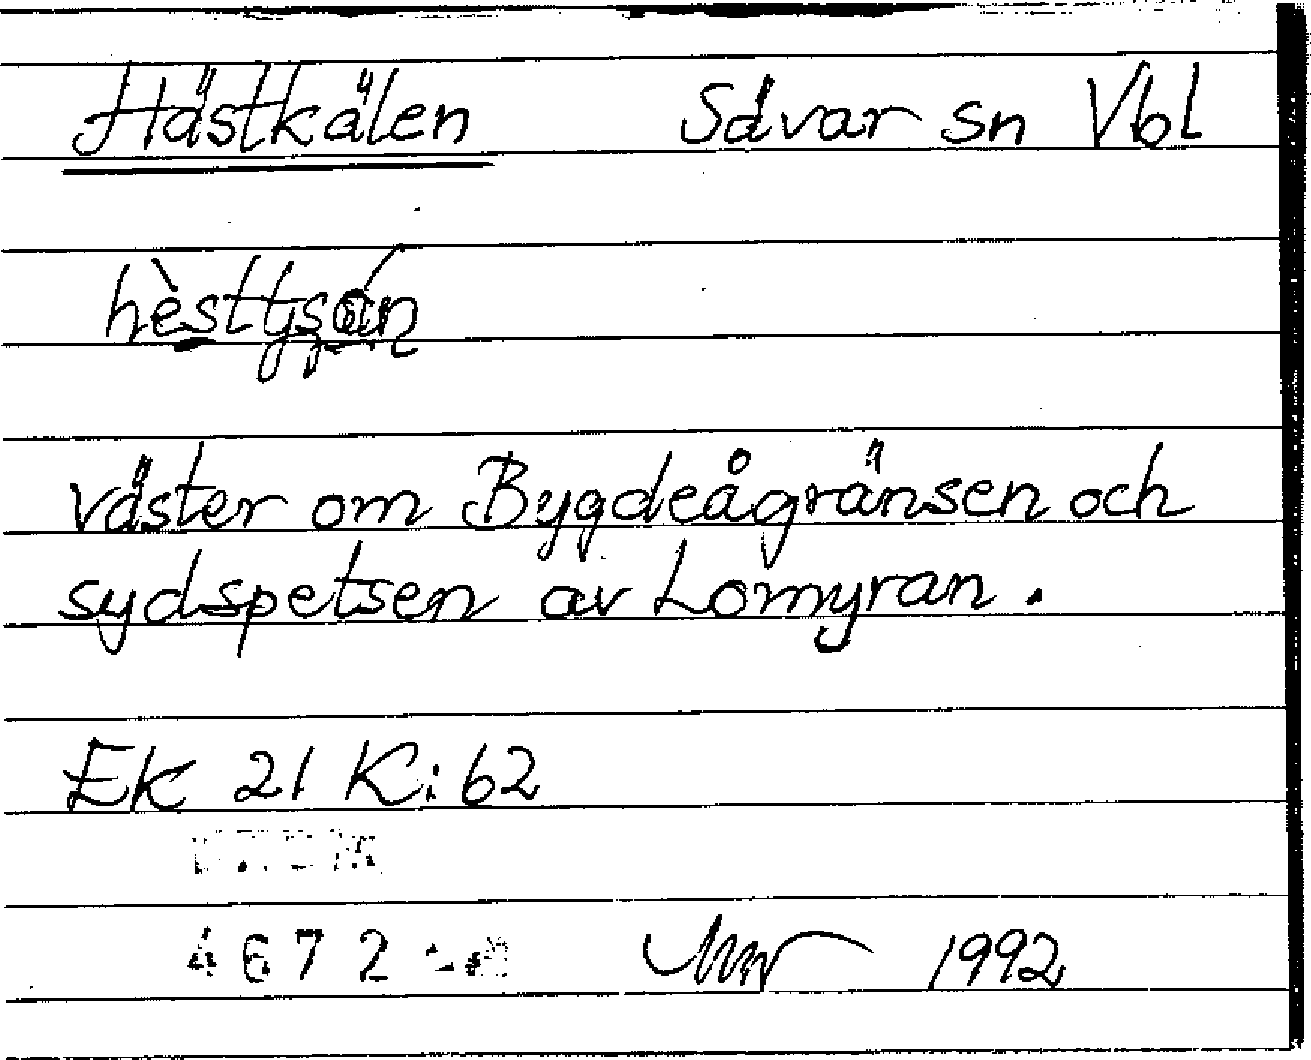 Hästkälen Sävar sn Vbl
väster om Bygdeågränsen och
sydspetsen av Lomyran.
Ek 21 K: 62
4672
1992